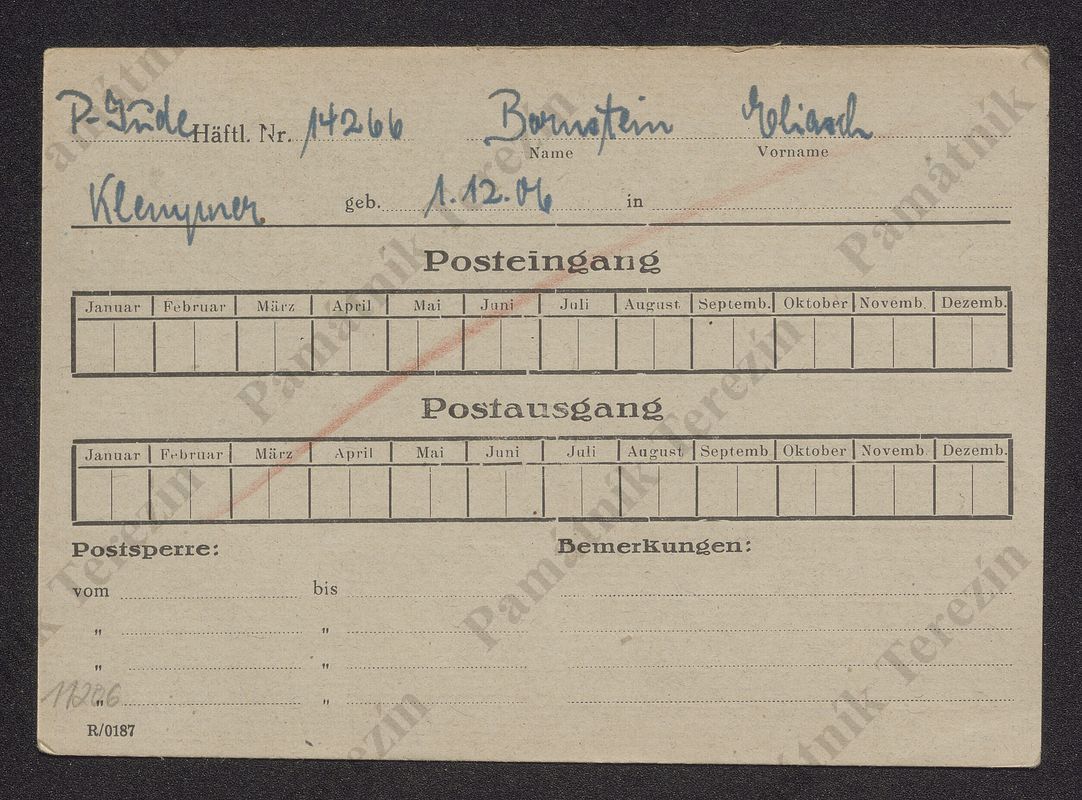 P-Jude Häftl. Nr. 14266 Bornstein Eliasch
Name Vorname
Klempner. geb. 1.12.06 in
Posteingang
Januar Februar März April Mai Juni Juli August Septemb. Oktober Novemb. Dezemb.
Postausgang
Januar Februar März April Mai Juni Juli August Septemb. Oktober Novemb. Dezemb.
Postsperre: Bemerkungen:
vom bis
" "
" "
" "
R/0187
Památník Terezín